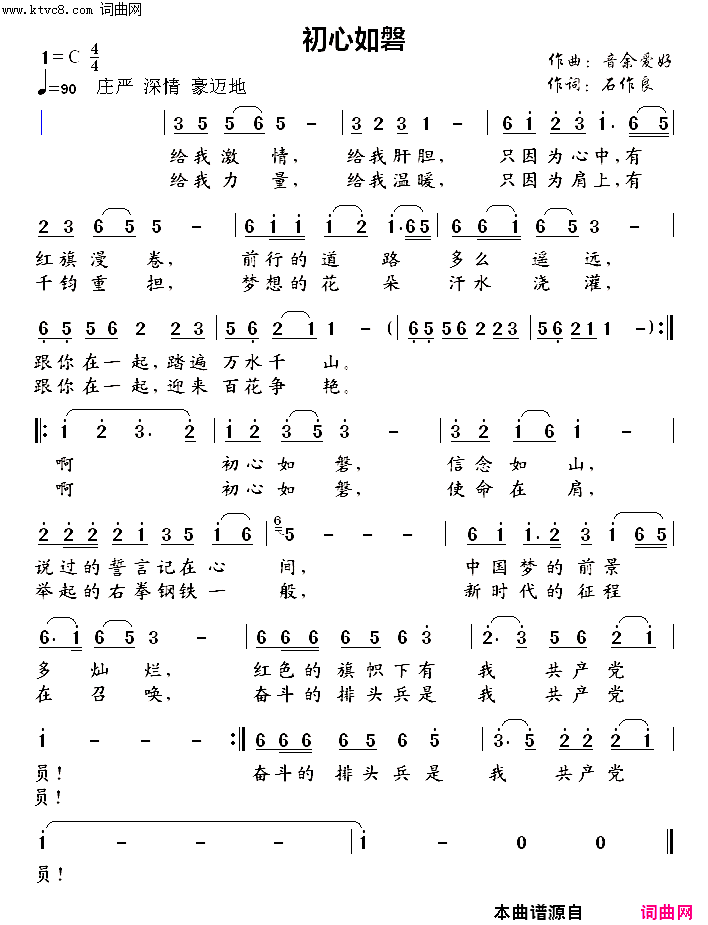 www.ktvc8.com 词曲网
初心如磐
1=C 4/4
作曲：音余爱好
♩=90 庄严 深情 豪迈地
作词：石作良
3 5 5 6 5 - | 3 2 3 1 - | 6 1 2 3 1. 6 5
给我激情， 给我肝胆， 只因为心中，有
给我力量， 给我温暖， 只因为肩上，有
2 3 6 5 5 - | 6 1 1 1 2 1. 6 5 | 6 6 1 6 5 3 - |
红旗漫卷， 前行的道路 多么遥远，
千钧重担， 梦想的花朵 汗水浇灌，
6 5 5 6 2 2 3 | 5 6 2 1 1 - ( | 6 5 5 6 2 2 3 | 5 6 2 1 1 - ) :||
跟你在一起，踏遍 万水千山。
跟你在一起，迎来 百花争艳。
||: 1 2 3. 2 | 1 2 3 5 3 - | 3 2 1 6 1 - |
啊 初心如磐， 信念如山，
啊 初心如磐， 使命在肩，
2 2 2 2 1 3 5 1 6 | 6 5 - - - | 6 1 1. 2 3 1 6 5 |
说过的誓言记在心间， 中国梦的前景
举起的右拳钢铁一般， 新时代的征程
6. 1 6 5 3 - | 6 6 6 6 5 6 3 | 2. 3 5 6 2 1 |
多灿烂， 红色的旗帜下有 我 共产党
在召唤， 奋斗的排头兵是 我 共产党
1 - - - :|| 6 6 6 6 5 6 5 | 3. 5 2 2 2 1 |
员！ 奋斗的排头兵是 我 共产党
员！
1 - - - | 1 - - - ||
员！
本曲谱源自 词曲网